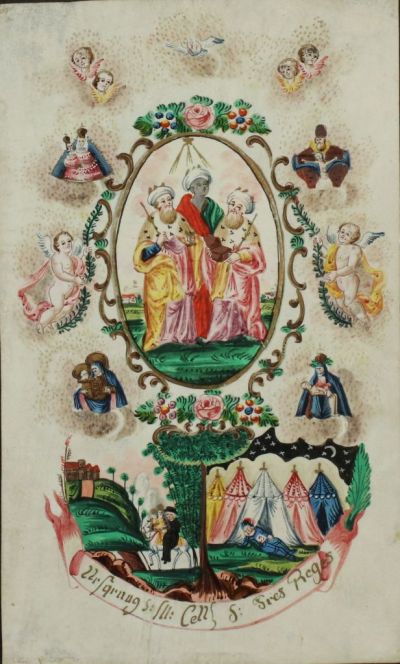 Ursprung d: Ill: Cell S: Tres Reges